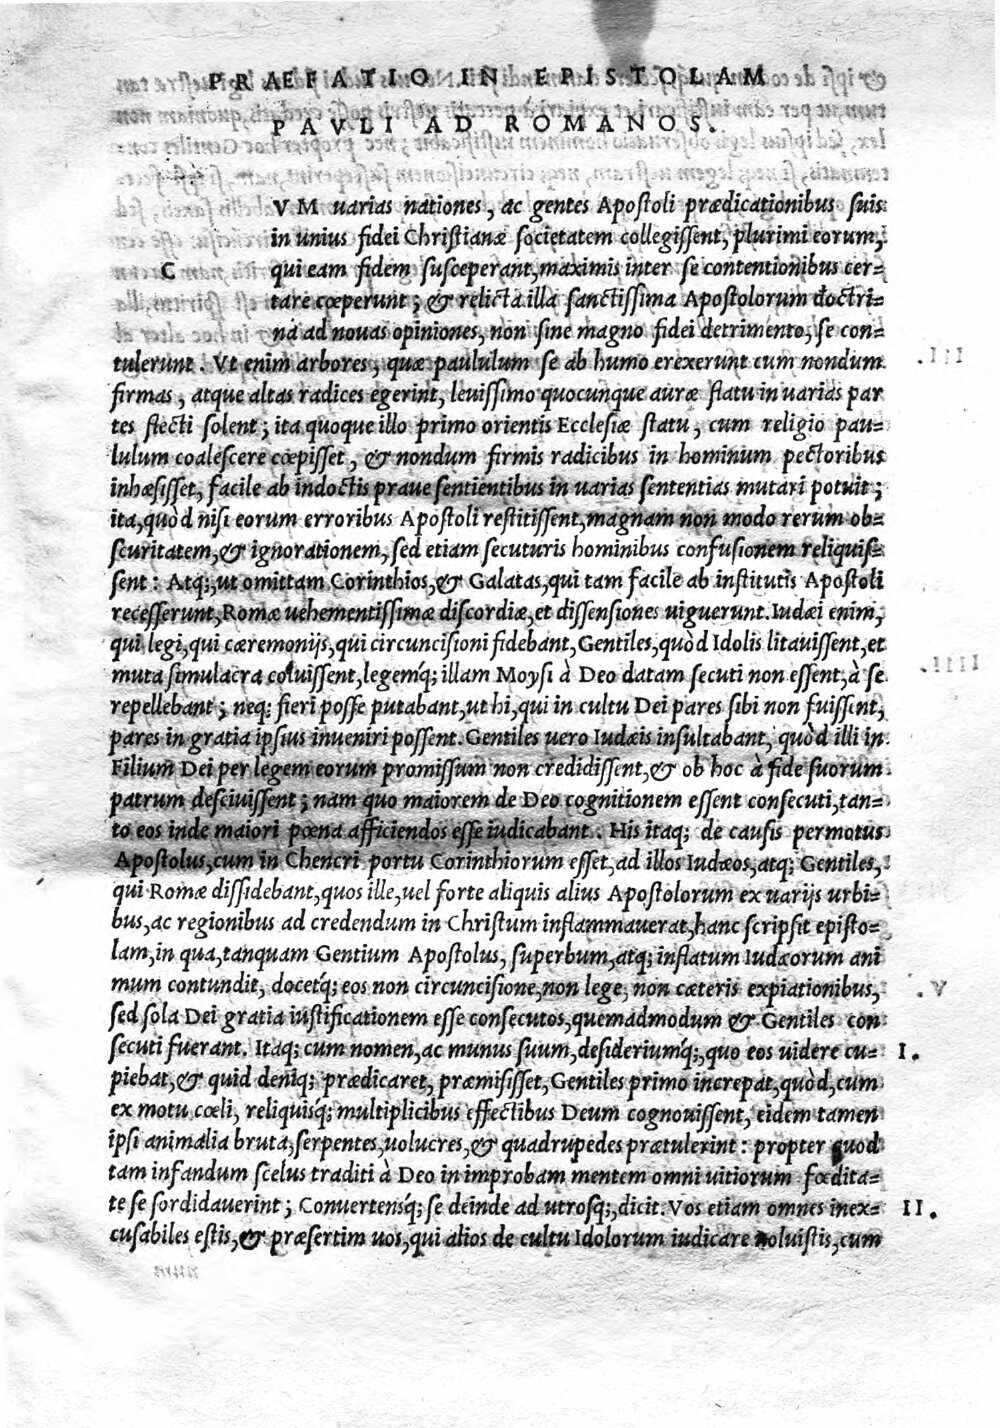 PRAEFATIO IN EPISTOLAM
PAVLI AD ROMANOS.
CVM uarias nationes, ac gentes Apostoli prædicationibus suis
in unius fidei Christianæ societatem collegissent, plurimi eorum,
qui eam fidem susceperant, maximis inter se contentionibus cer-
tare cœperunt; & relicta illa sanctissima Apostolorum doctri-
na ad nouas opiniones, non sine magno fidei detrimento, se con-
tulerunt. Vt enim arbores, quæ paululum se ab humo erexerunt cum nondum
firmas, atque altas radices egerint, leuissimo quocunque auræ flatu in uarias par
tes flecti solent; ita quoque illo primo orientis Ecclesiæ statu, cum religio pau-
lulum coalescere cœpisset, & nondum firmis radicibus in hominum pectoribus
inhæsisset, facile ab indoctis praue sentientibus in uarias sententias mutari potuit;
ita, quòd nisi eorum erroribus Apostoli restitissent, magnam non modo rerum ob-
scuritatem, & ignorationem, sed etiam secuturis hominibus confusionem reliquis-
sent: Atq;, ut omittam Corinthios, & Galatas, qui tam facile ab institutis Apostoli
recesserunt, Romæ uehementissimæ discordiæ, et dissensiones uiguerunt. Iudæi enim,
qui legi, qui cæremonijs, qui circuncisioni fidebant, Gentiles, quòd Idolis litauissent, et
muta simulacra coluissent, legemq́; illam Moysi à Deo datam secuti non essent, à se
repellebant; neq; fieri posse putabant, ut hi, qui in cultu Dei pares sibi non fuissent,
pares in gratia ipsius inueniri possent. Gentiles uero Iudæis insultabant, quòd illi in
Filium Dei per legem eorum promissum non credidissent, & ob hoc à fide suorum
patrum desciuissent; nam quo maiorem de Deo cognitionem essent consecuti, tan-
to eos inde maiori pœna afficiendos esse iudicabant. His itaq; de causis permotus
Apostolus, cum in Chencri portu Corinthiorum esset, ad illos Iudæos, atq; Gentiles,
qui Romæ dissidebant, quos ille, uel forte aliquis alius Apostolorum ex uarijs urbi-
bus, ac regionibus ad credendum in Christum inflammauerat, hanc scripsit episto-
lam, in qua, tanquam Gentium Apostolus, superbum, atq; inflatum Iudæorum ani
mum contundit, docetq́; eos non circuncisione, non lege, non cæteris expiationibus,
sed sola Dei gratia iustificationem esse consecutos, quemadmodum & Gentiles con
secuti fuerant. Itaq; cum nomen, ac munus suum, desideriumq́;, quo eos uidere cu- I.
piebat, & quid deniq; prædicaret, præmisisset, Gentiles primo increpat, quòd, cum
ex motu cœli, reliquisq́; multiplicibus effectibus Deum cognouissent, eidem tamen
ipsi animalia bruta, serpentes, uolucres, & quadrupedes prætulerint: propter quod
tam infandum scelus traditi à Deo in improbam mentem omni uitiorum fœdita-
te se sordidauerint; Conuertensq́; se deinde ad utrosq;, dicit. Vos etiam omnes inex- II.
cusabiles estis, & præsertim uos, qui alios de cultu Idolorum iudicare uoluistis, cum